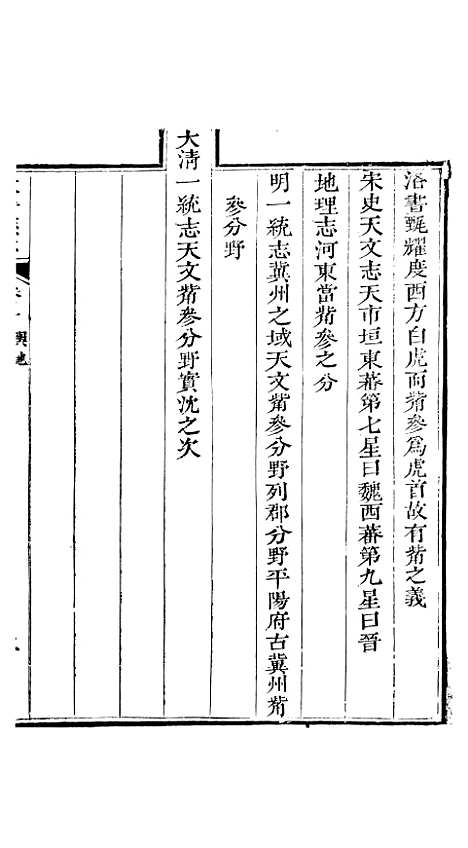 洛書甄耀度西方白虎而觜參爲虎首故有觜之義
宋史天文志天市垣東蕃第七星曰魏西蕃第九星曰晉
地理志河東當觜參之分
明一統志冀州之域天文觜參分野列郡分野平陽府古冀州觜
參分野
大清一統志天文觜參分野實沈之次
輿地